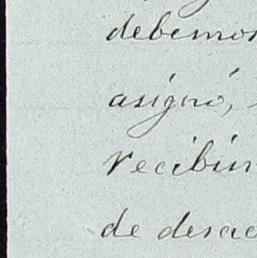 debemos
asignó,
recibir
de desac